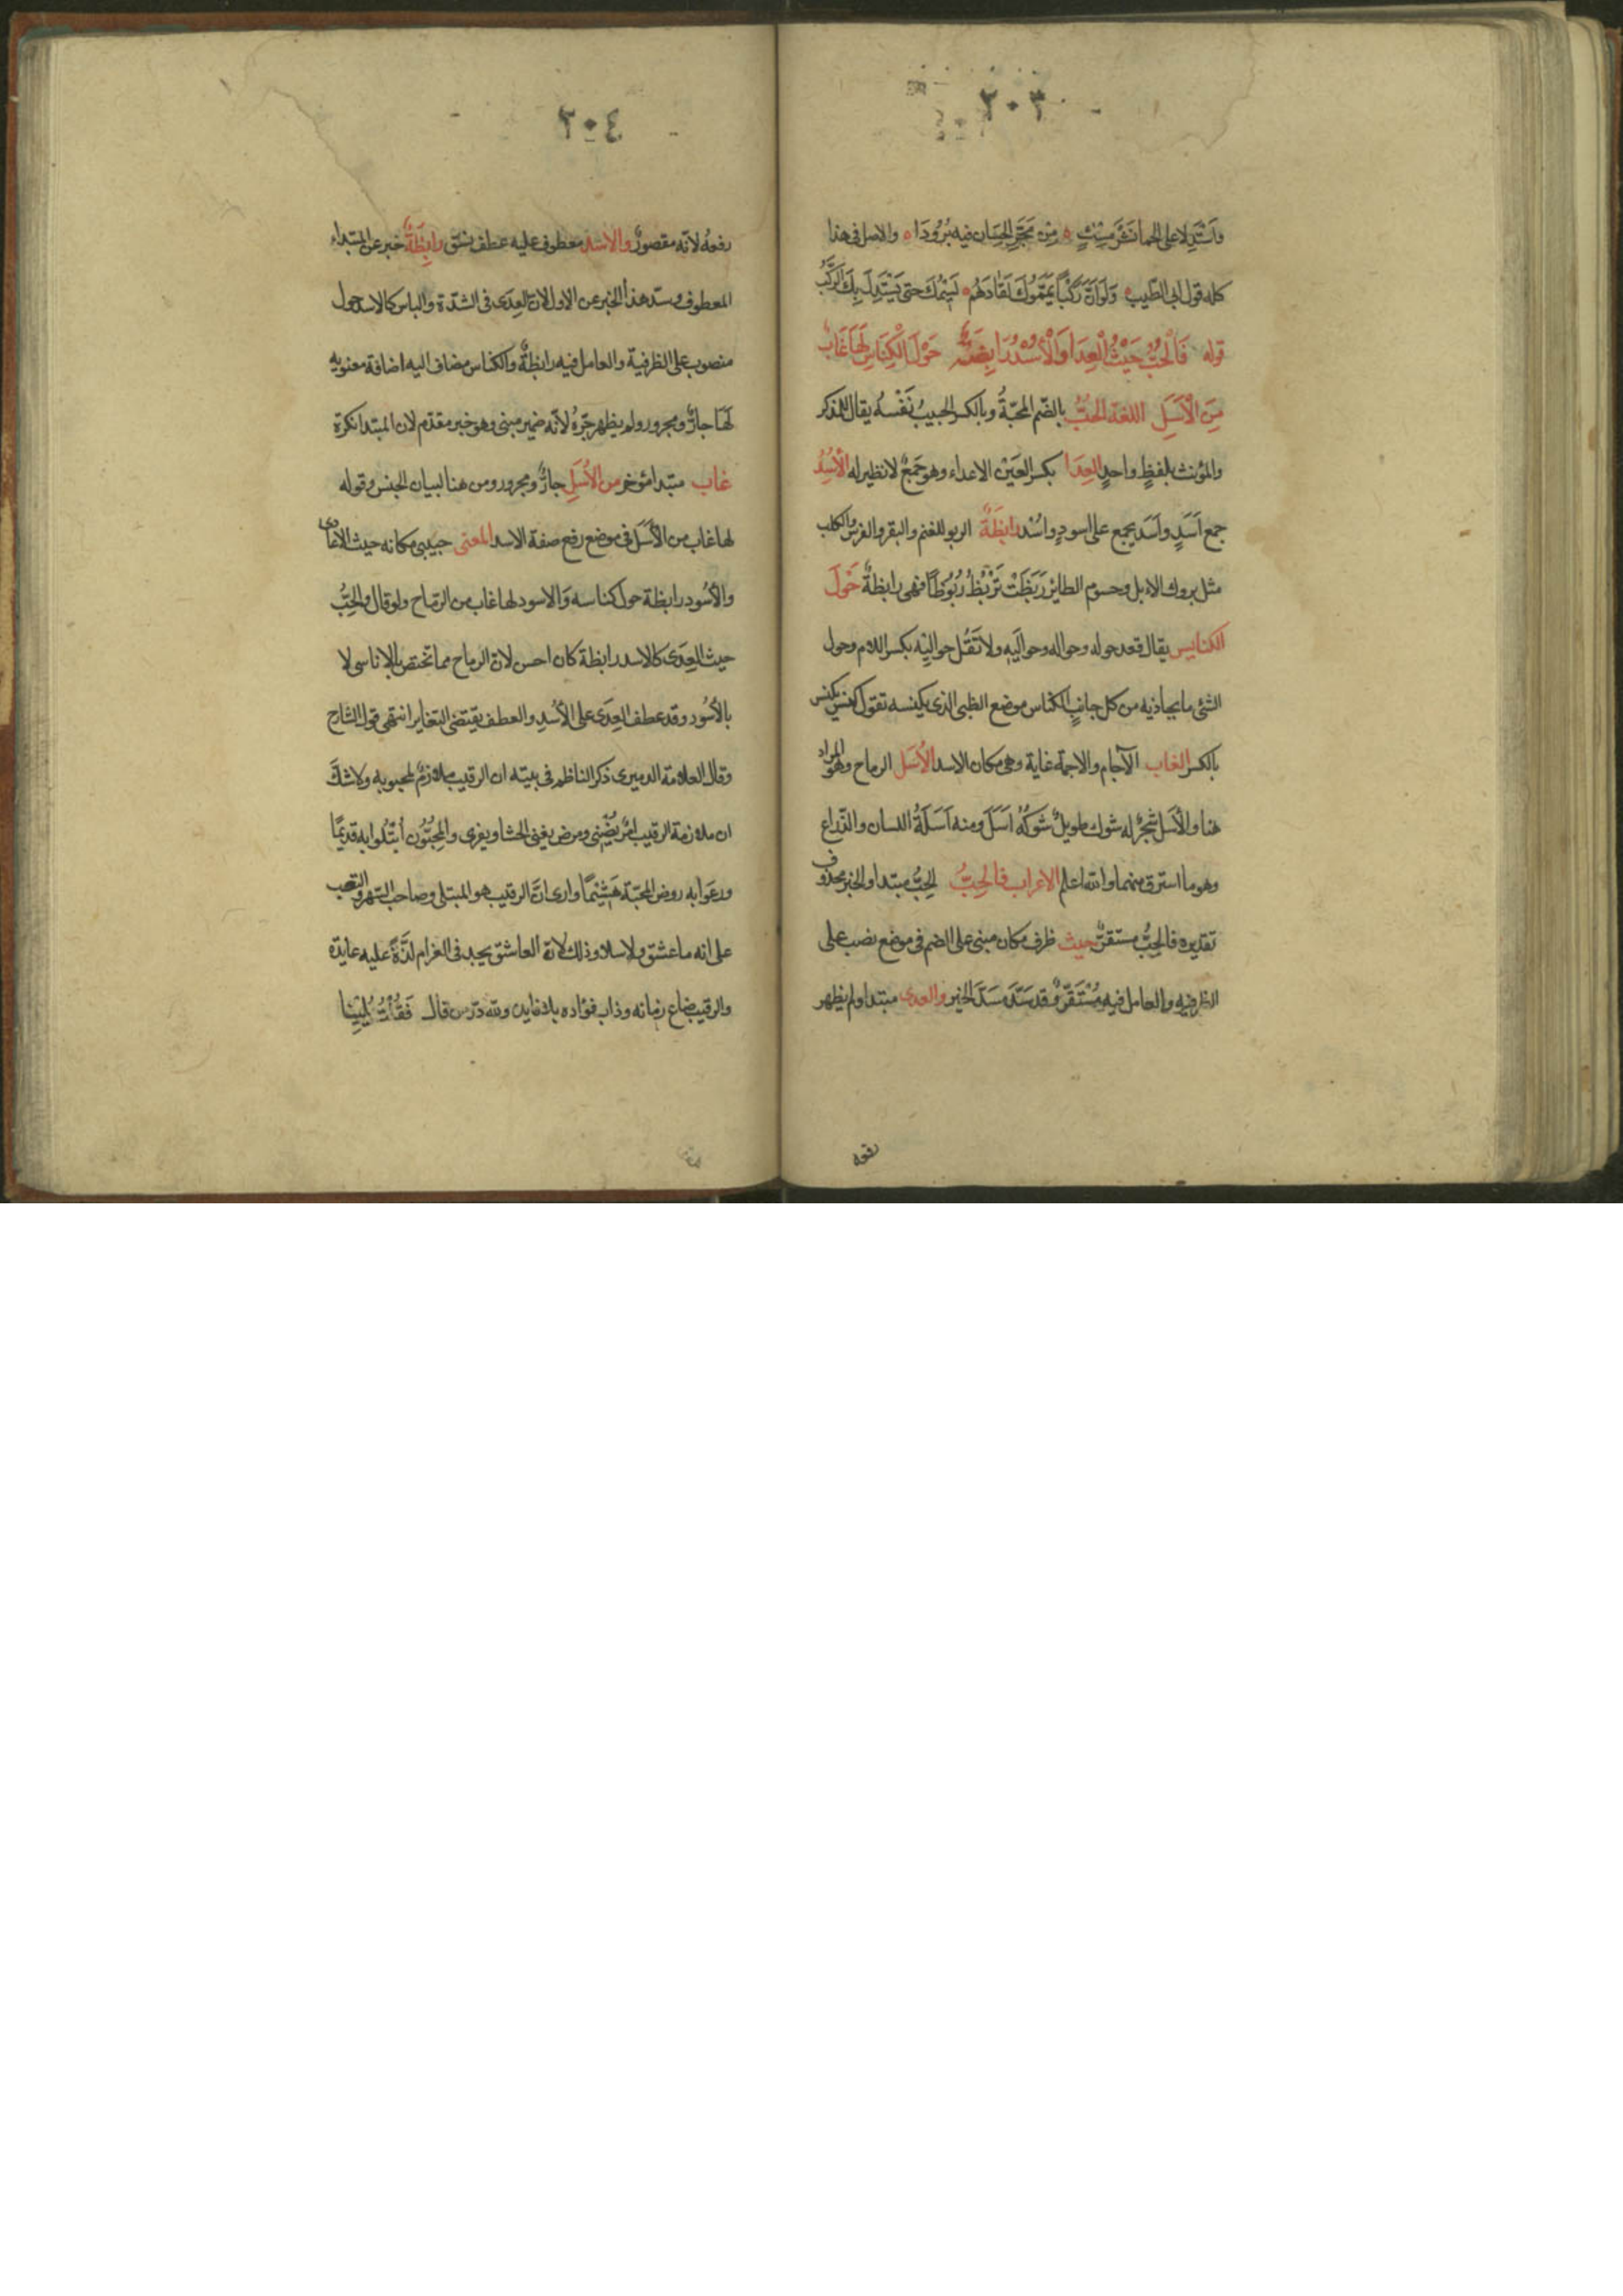 ٢٠٣
واستدلا على الحما نشر مسك ه من مجر الحسان فيه برودا ه والاصل في هذا
كله قول ابي الطيب ه ولو ان ركبا يمموك لقادهم ه نسيمك حتى يستدل بك الركب
قوله فَالْحُبُّ حَيْثُ الْعِدَا وَالْأُسْدُ رَابِضَةٌ حَوْلَ الْكِنَاسِ لَهَا غَابٌ
مِنَ الْأَسَلِ اللغة الحبّ بالضم المحبّة وبالكسر الحبيب نفسه يقال للمذكر
والمؤنث بلفظٍ واحدٍ العِدَا بكسر العين الاعداء وهو جمع لا نظير له الأُسْدُ
جمع اَسَدٍ واَسَد يجمع على اسودٍ واُسْد رابظَةٌ الربو للغنم والبقر والفرس والكلب
مثل بروك الابل وحسوم الطائر رَبَظَتْ تَرْبُظُ رُبُوظًا فهي رابظةٌ حَوْلَ
الكناس يقال قعد حوله وحواله وحوالَيه ولا تَقُل حوالِيْه بكسر اللام وحول
الشئ ما يحاذيه من كل جانبٍ الكناس موضع الظبي الذي يكنسه تقول كنس يكنس
بالكسر الغاب الآجام والاجمة غابة وهي مكان الاسد الأَسَل الرماح وهو المراد
هنا والأَسَل شجرٌ له شوك طويلٌ شَوكُهُ اَسَلٌ ومنه اَسَلَةُ اللسان والذراع
وهو ما استرق منهما والله اعلم الاعراب فالحِبُّ الحِبُّ مبتدا والخبر محذوف
تقديره فالحِبُّ مستقرٌّ حيث ظرف مكان مبنى على الضم في موضع نصب على
الظرفيه والعامل فيه مُسْتَقَرٌّ وقد سَدَّ مَسَدَّ الخبر والعدى مبتدا ولم يظهر
رفعه
٢٠٤
رفعُه لانّه مقصورٌ والاسد معطوف عليه عطف نسق رابِظَةٌ خبر عن المبتداء
المعطوف وسدّ هذا الخبر عن الاول لان العِدَى في الشدّة والباس كالاسد حول
منصوب على الظرفية والعامل فيه رابظةٌ والكناس مضاف اليه اضافة معنويه
لَهَا جارٌّ ومجرور ولم يظهر جرّهُ لانّه ضمير مبني وهو خبر مقدّم لان المبتدا نكرة
غاب مبتدا مؤخر من الأَسَلِ جارٌّ ومجرور ومن هنا لبيان الجنس وقوله
لها غاب من الأَسَل في موضع رفع صفة الاسد المعنى حبيبي مكانه حيث الاعادى
والأُسُود رابظة حول كناسه وَالاسود لها غاب من الرماح ولو قال والحِبُّ
حيث العِدَى كالاسد رابظة كان احسن لانّ الرماح مما تختص بالاناسى لا
بالأُسُود وقد عطف العِدَى على الأُسْدِ والعطف يقتضى التغاير انتهى قول الشارح
وقال العلامة الدميرى ذكر الناظم في بيته ان الرقيب ملازمٌ لمحبوبه ولا شكّ
ان ملازمة الرقيب امرٌ يضْنى ومرض يفنى الحشا ويفرى والمحِبُّون اُبتُلوا به قديمًا
ورعَوا به روض المحبّة هَشِيْمًا وارى انّ الرقيب هو المبتلى وصاحب السهر والتعب
على انه ما عشق ولا سلا وذلك لانّ العاشق يجد في الغرام لذّةً عليه عايدّة
والرقيب ضاع زمانه وذاب فؤاده بلا فايده ولله درّ من قال